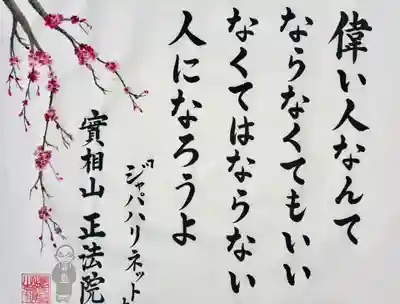 偉い人なんて
ならなくてもいい
なくてはならない
人になろうよ
「ジャパハリネット」
實相山 正法院